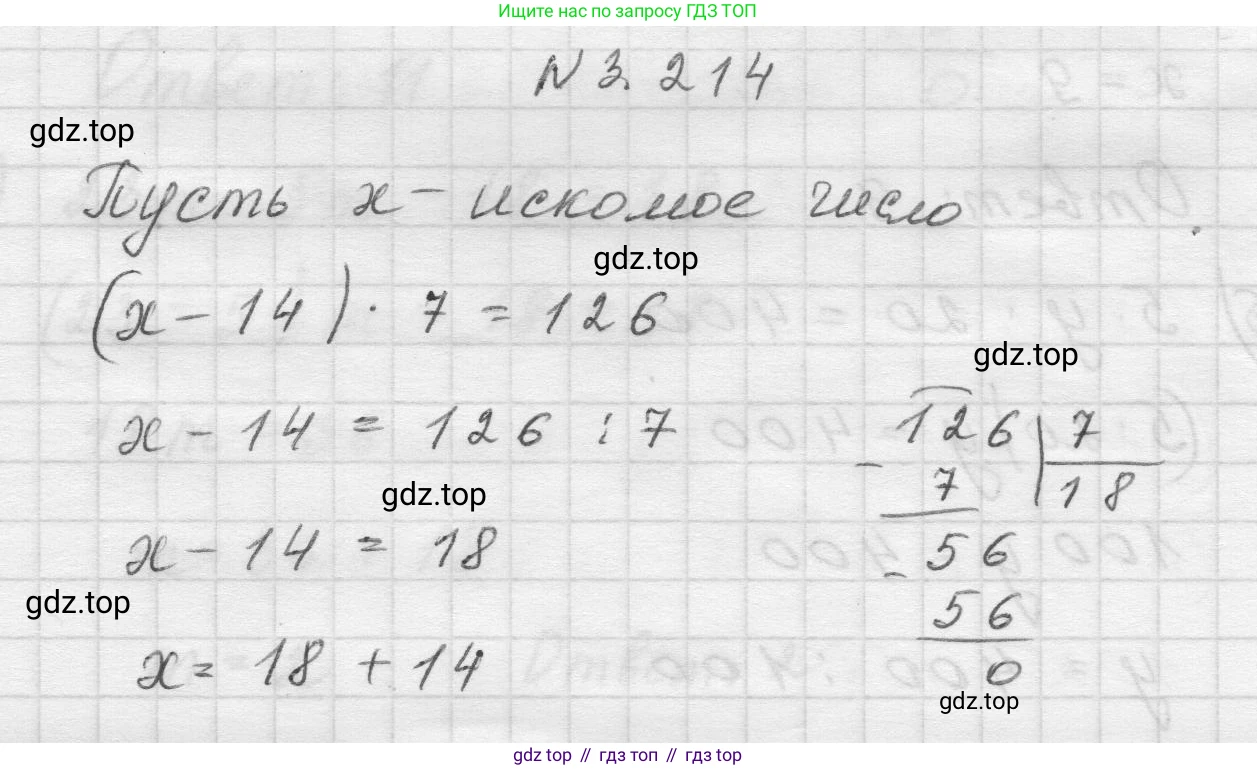 Ищите нас по запросу ГДЗ ТОП
N 3. 214
gdz.top
Пусть x - искомое число
gdz.top
(x - 14) · 7 = 126
gdz.top
x - 14 = 126 : 7
126 | 7
- 7 | 18
gdz.top
x - 14 = 18
- 56
gdz.top
56
x = 18 + 14
0
gdz.top
gdz top // гдз топ // gdz top